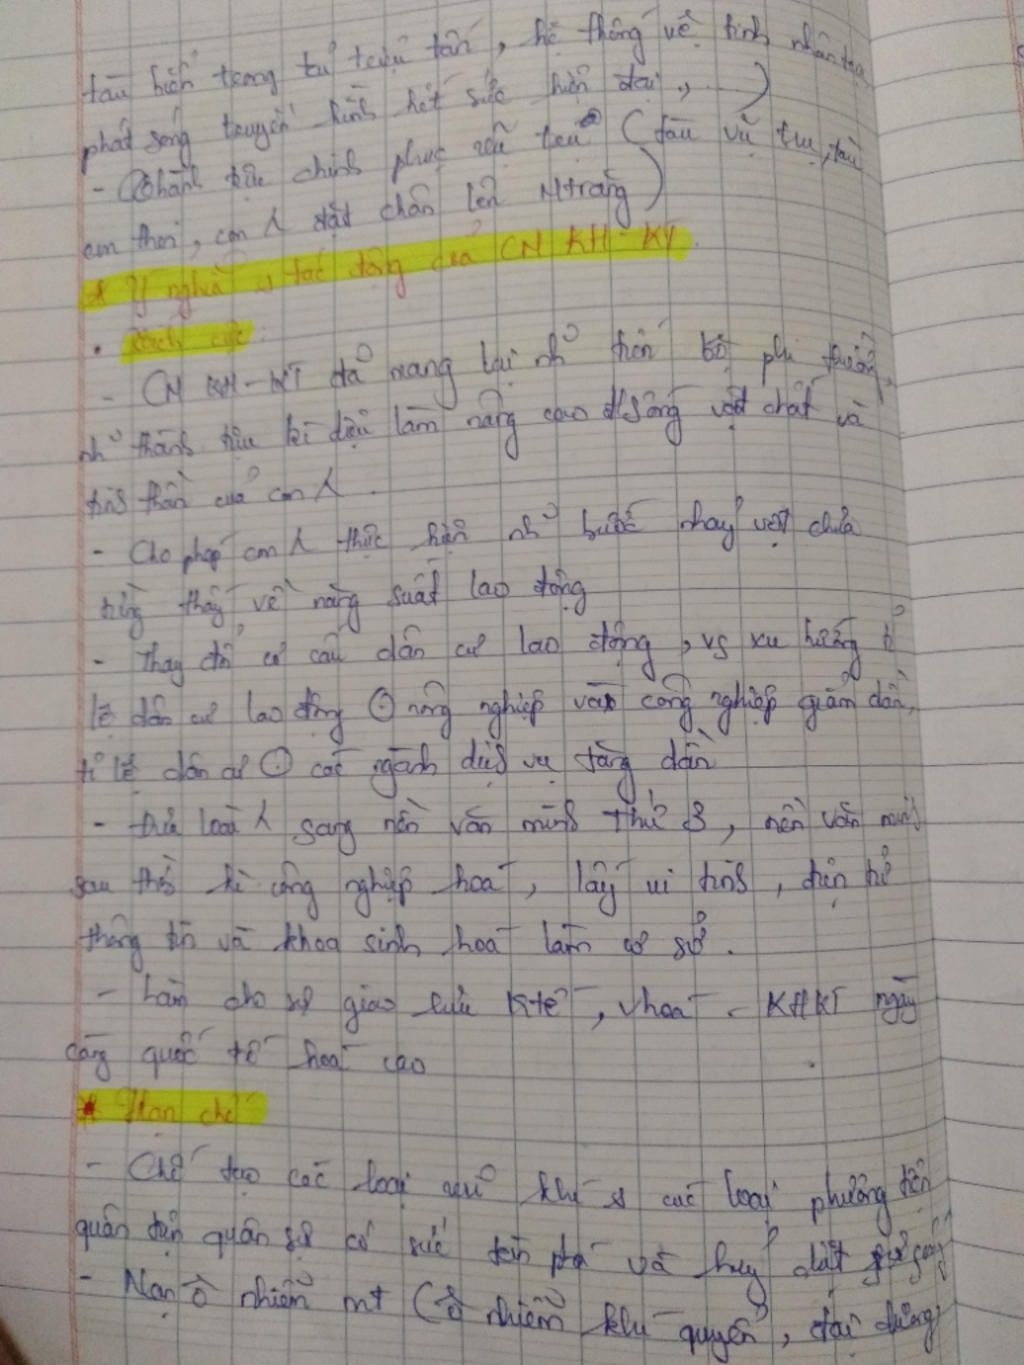 tàu biển trong tư triệu tấn, hệ thống vệ tinh nhân tạo
phát sóng truyền hình hết sức hiện đại, ...)
- Thành tựu chinh phục vũ trụ (tàu vũ trụ, tàu
con thoi, con λ đặt chân lên Mtrăng)
* Ý nghĩa và tác động của CM KH-KT.
• Tích cực:
- CM KH-KT đã mang lại nh~ tiến bộ phi thường,
nh~ thành tựu kì diệu làm nâng cao đ/sống vật chất và
tinh thần của con λ.
- Cho phép con λ thực hiện nh~ bước nhảy vọt chưa
từng thấy về năng suất lao động
- Thay đổi cơ cấu dân cư lao động, vs xu hướng tỉ
lệ dân cư lao động ⊙ nông nghiệp và công nghiệp giảm dần,
tỉ lệ dân cư ⊙ các ngành dịch vụ tăng dần
- đưa loài λ sang nền văn minh thứ 3, nền văn minh
sau thời kì công nghiệp hoá, lấy vi tính, điện tử
thông tin và khoa sinh hoá làm cơ sở.
- Làm cho sự giao lưu Ktế, vhoá - KHKT ngày
càng quốc tế hoá cao
* Hạn chế
- Chế tạo các loại vũ khí và các loại phương tiện
quân sự có sức tàn phá và huỷ diệt sự sống
- Nạn ô nhiễm mt (ô nhiễm khí quyển, đại dương,